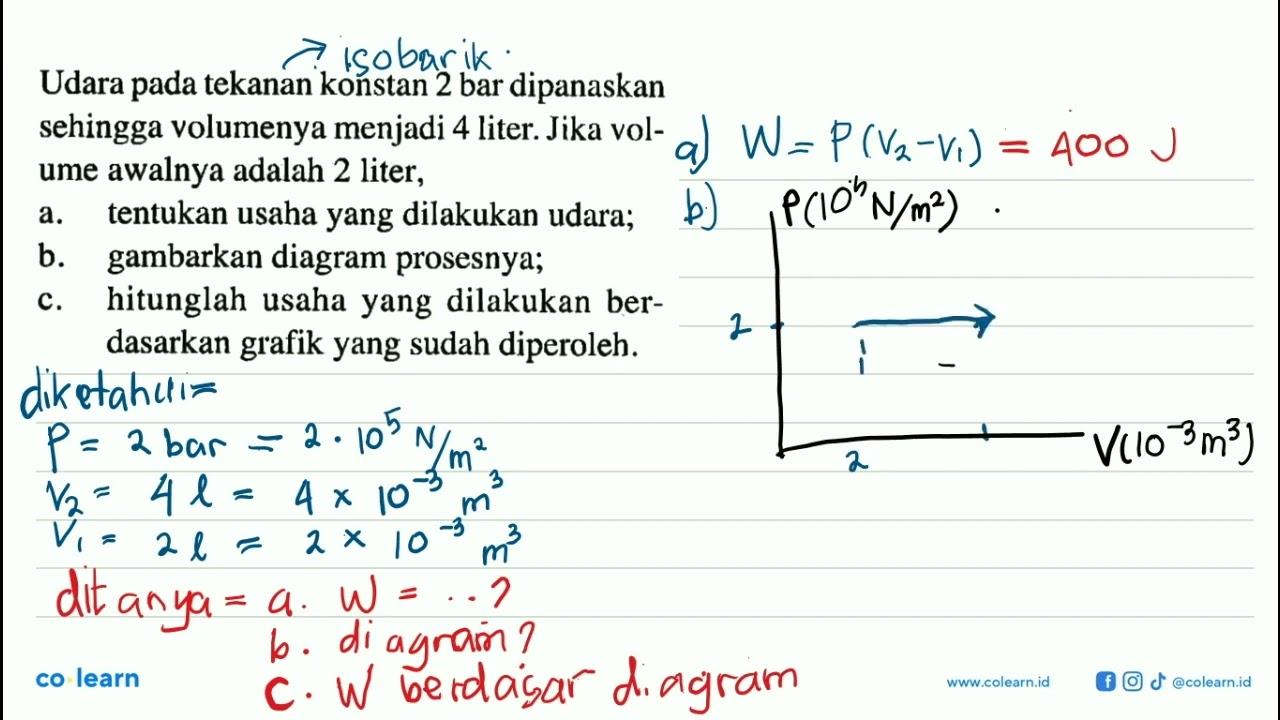 isobarik
Udara pada tekanan konstan 2 bar dipanaskan
sehingga volumenya menjadi 4 liter. Jika vol-
ume awalnya adalah 2 liter,
a. tentukan usaha yang dilakukan udara;
b. gambarkan diagram prosesnya;
c. hitunglah usaha yang dilakukan ber-
dasarkan grafik yang sudah diperoleh.
diketahui=
P = 2 bar = 2 · 10⁵ N/m²
V₂ = 4 l = 4 × 10⁻³ m³
V₁ = 2 l = 2 × 10⁻³ m³
ditanya = a. W = ..?
b. diagram?
c. W berdasar diagram
a) W = P(V₂-V₁) = 400 J
b) P(10⁵ N/m²)
2
2
V(10⁻³ m³)
co learn
www.colearn.id
@colearn.id